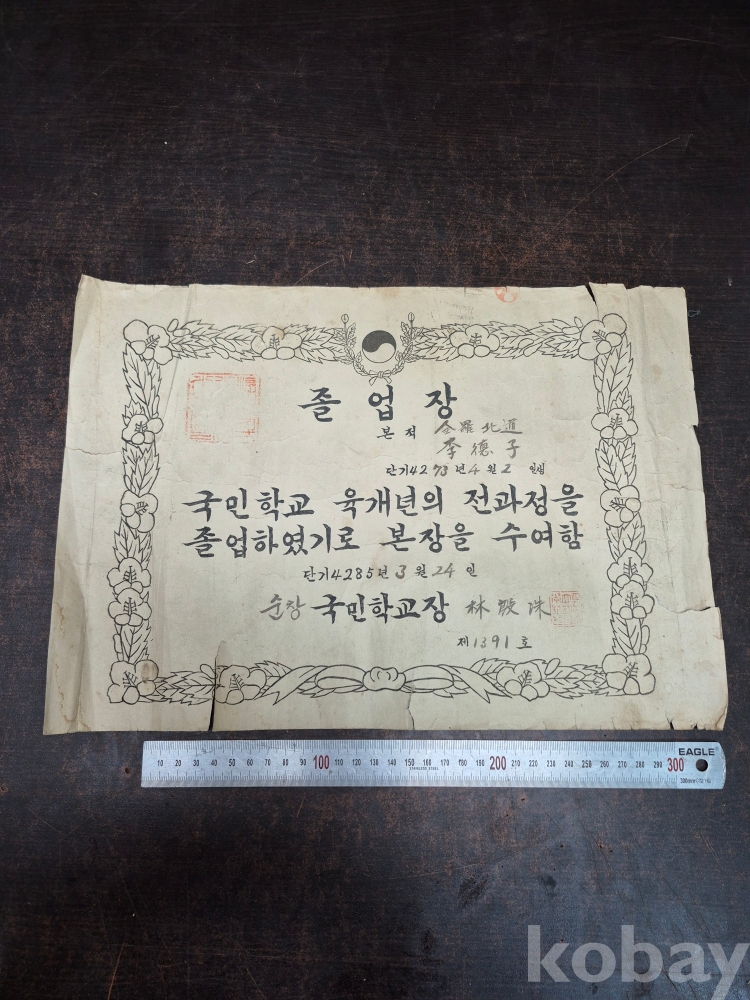 졸업장
본적 全羅北道
李德子
단기4273년4월2일생
국민학교 육개년의 전과정을
졸업하였기로 본장을 수여함
단기4285년3월24일
순창 국민학교장 林 珠
제1391호
10 20 30 40 50 60 70 80 90 100 110 120 130 140 150 160 170 180 190 200 210 220 230 240 250 260 270 280 290 300
STAINLESS STEEL
EAGLE
kobay